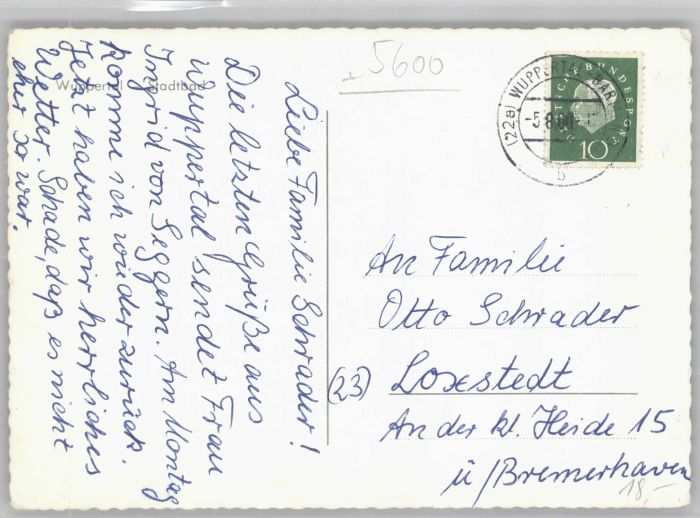 Wuppertal Stadtbad
Liebe Familie Schrader!
Die letzten Grüße aus
Wuppertal sendet Frau
Ingrid von Seggern. Am Montag
komme ich wieder zurück.
Jetzt haben wir herrliches
Wetter. Schade, daß es nicht
eher so war.
+5600
(22a) WUPPERTAL-BAR
-5.8.60
b
BUNDESPOST
10
An Familie
Otto Schrader
(23) Loxstedt
An der kl. Heide 15
ü/Bremerhaven
18,-